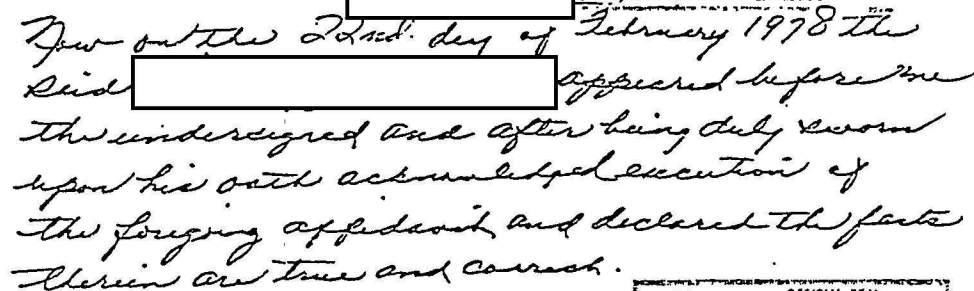 Now on the 22nd. day of February 1978 the
said appeared before me
the undersigned and after being duly sworn
upon his oath acknowledged execution of
the foregoing affidavit and declared the facts
therein are true and correct.